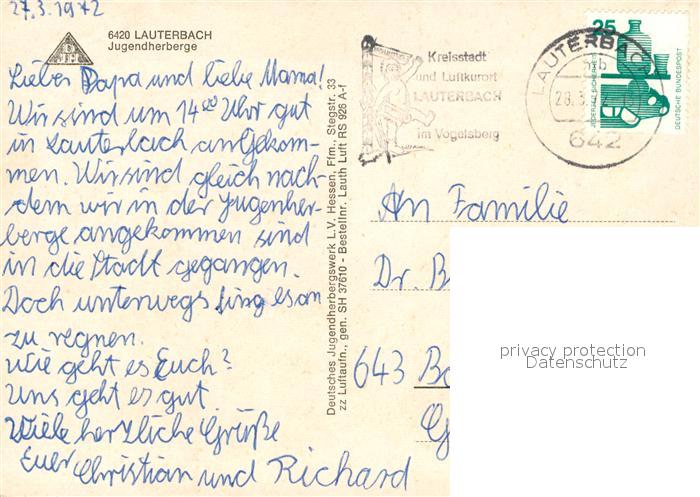 27.3.1972
6420 LAUTERBACH
Jugendherberge
DJH
Lieber Papa und liebe Mama!
Wir sind um 14⁰⁰ Uhr gut
in Lauterbach angekom-
men. Wir sind gleich nach-
dem wir in der Jugenher-
berge angekommen sind
in die Stadt gegangen.
Doch unterwegs fing es an
zu regnen.
Wie geht es Euch?
Uns geht es gut.
Viele herzliche Grüße
Euer Christian und Richard
Deutsches Jugendherbergswerk L.V. Hessen, Ffm., Stegstr. 33
zz Luftaufn., gen. SH 37610 - Bestellnr. Lauth Luft RS 926 A-f
Kreisstadt
und Luftkurort
LAUTERBACH
im Vogelsberg
LAUTERBAC
28.3.
642
25
JEDERZEIT SICHERHEIT
DEUTSCHE BUNDESPOST
An Familie
Dr. B
643 Ba
G
privacy protection
Datenschutz